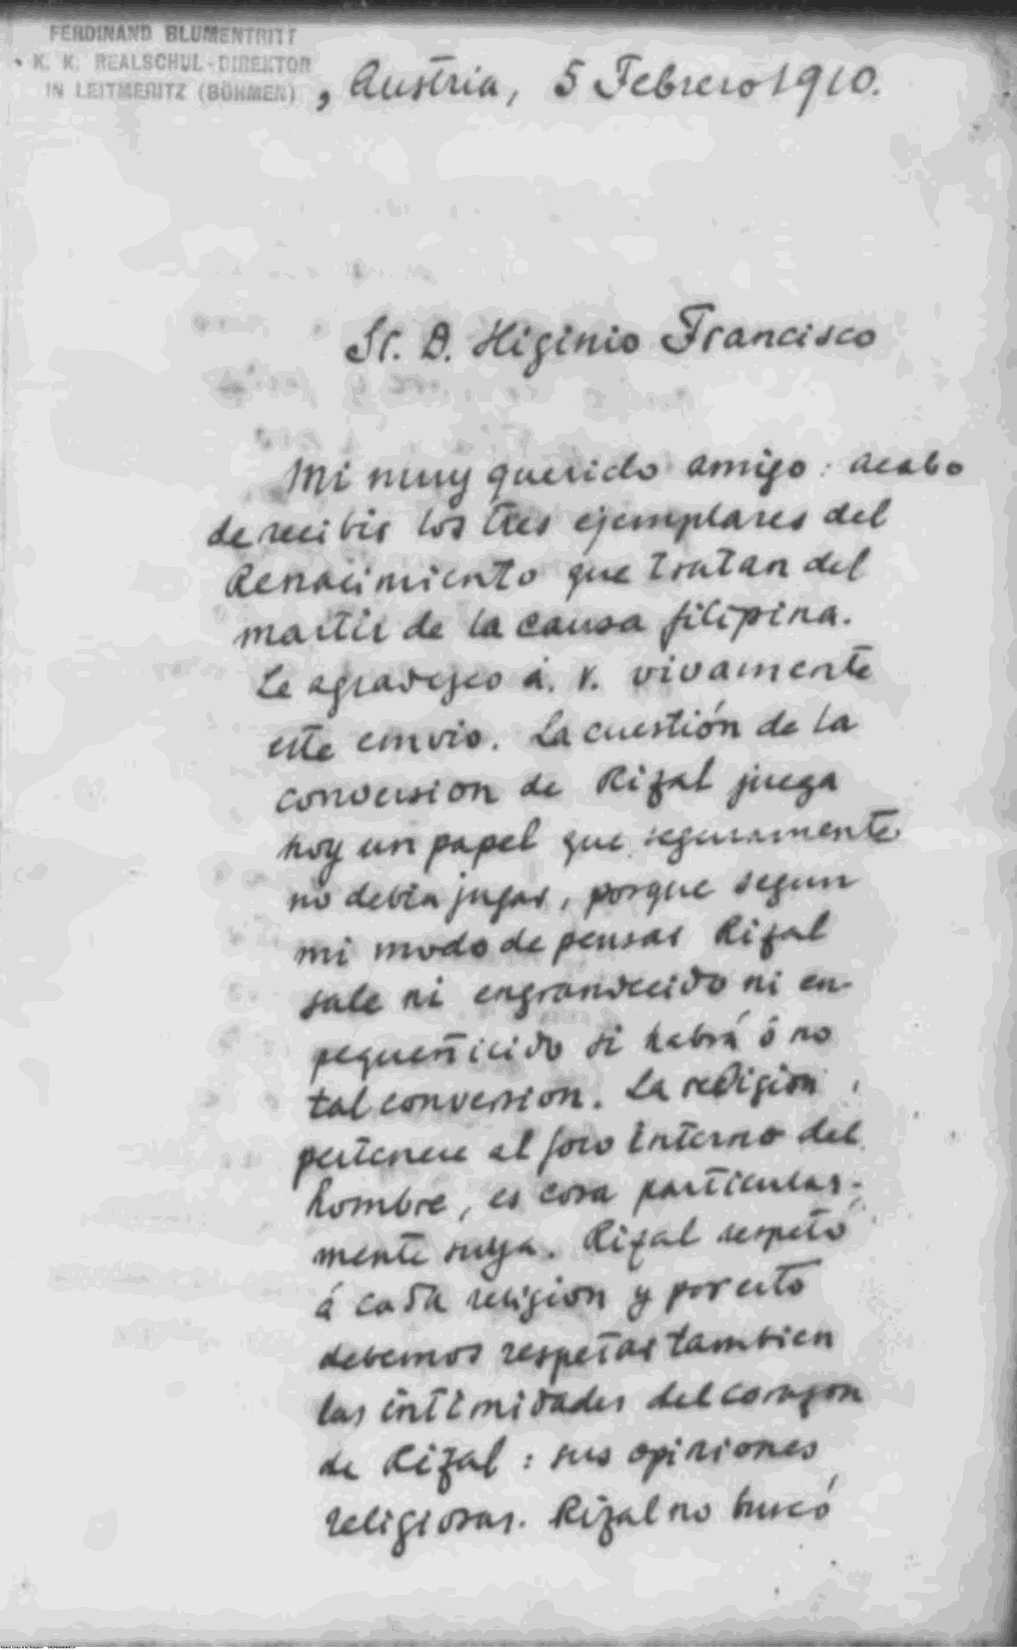 FERDINAND BLUMENTRITT
K. K. REALSCHUL-DIREKTOR
IN LEITMERITZ (BÖHMEN)
, Austria, 5 Febrero 1910.
Sr. D. Higinio Francisco
Mi muy querido amigo: acabo
de recibir los tres ejemplares del
Renacimiento que tratan del
martir de la causa filipina.
Le agradezco á. V. vivamente
este emvio. La cuestión de la
conversion de Rizal juega
hoy un papel que seguramente
no debia jugar, porque segun
mi modo de pensar Rizal
sale ni engrandecido ni en-
pequeñicido si habrá ó no
tal conversion. La religion
pertenece al foro interno del
hombre, es cosa particular-
mente suya. Rizal respetó
á cada religion y por esto
debemos respetar tambien
las intimidades del corazon
de Rizal: sus opiniones
religiosas. Rizal no buscó